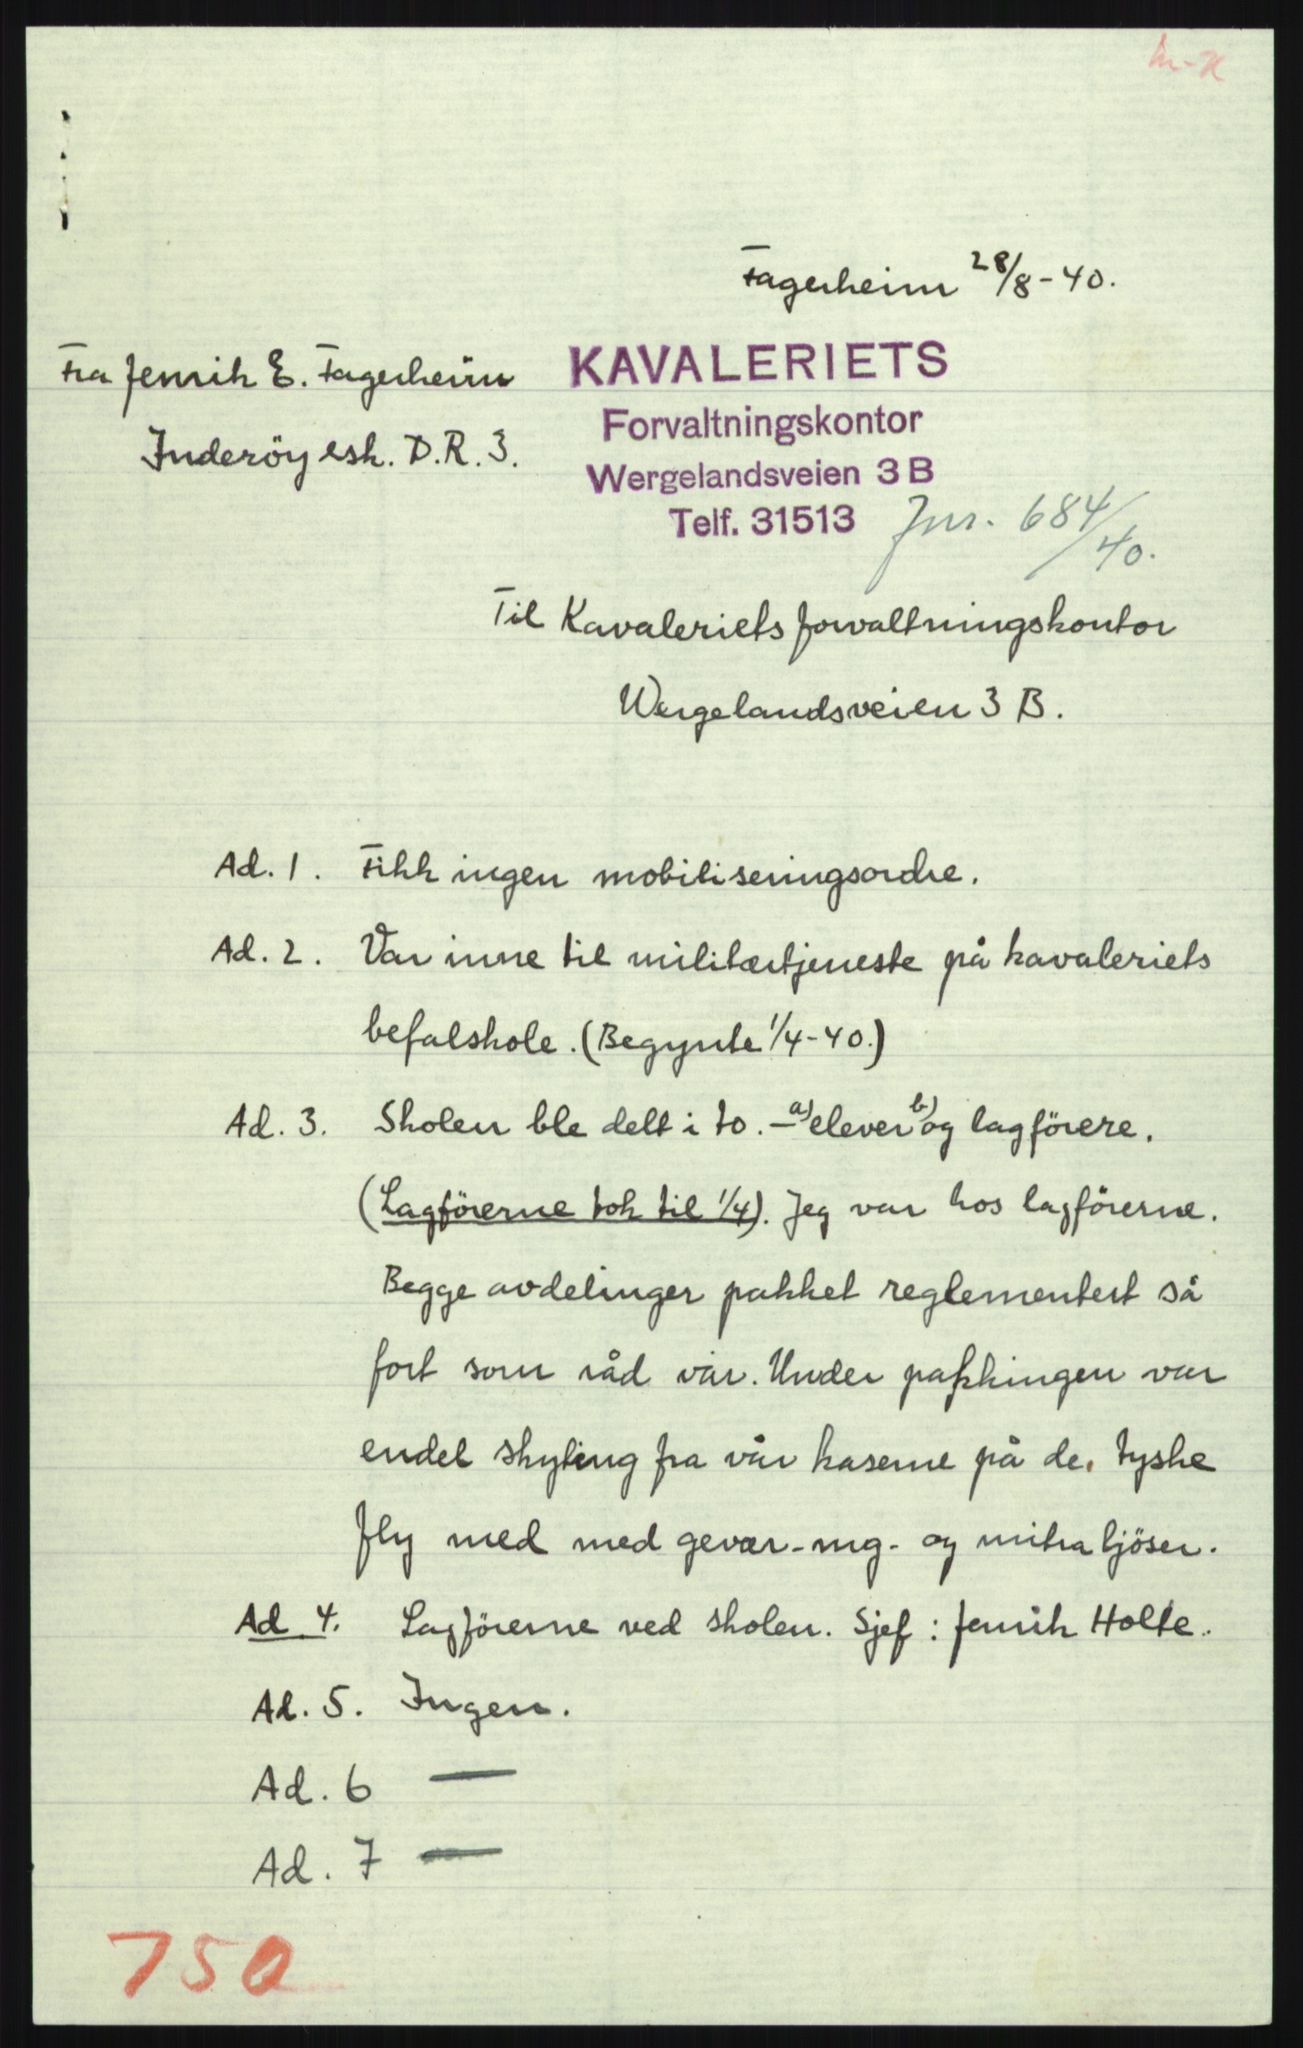 Fagerheim 28/8-40.
Fra fenrik E. Fagerheim
Inderöy esk. D.R. 3.
KAVALERIETS
Forvaltningskontor
Wergelandsveien 3 B
Telf. 31513
Jnr. 684/40.
Til Kavaleriets forvaltningskontor
Wergelandsveien 3 B.
Ad. 1. Fikk ingen mobiliseringsordre.
Ad. 2. Var inne til militærtjeneste på kavaleriets
befalskole. (Begynte 1/4-40.)
Ad. 3. Skolen ble delt i to. – a) elever b) og lagförere.
(Lagförerne tok til 1/4). Jeg var hos lagförerne.
Begge avdelinger pakket reglementert så
fort som råd var. Under pakkingen var
endel skyting fra vår kaserne på de. tyske
fly med med gevær-mg- og mitraljöser.
Ad 4. Lagförerne ved skolen. Sjef: fenrik Holte.
Ad. 5. Ingen.
Ad. 6 —
Ad. 7 —
750